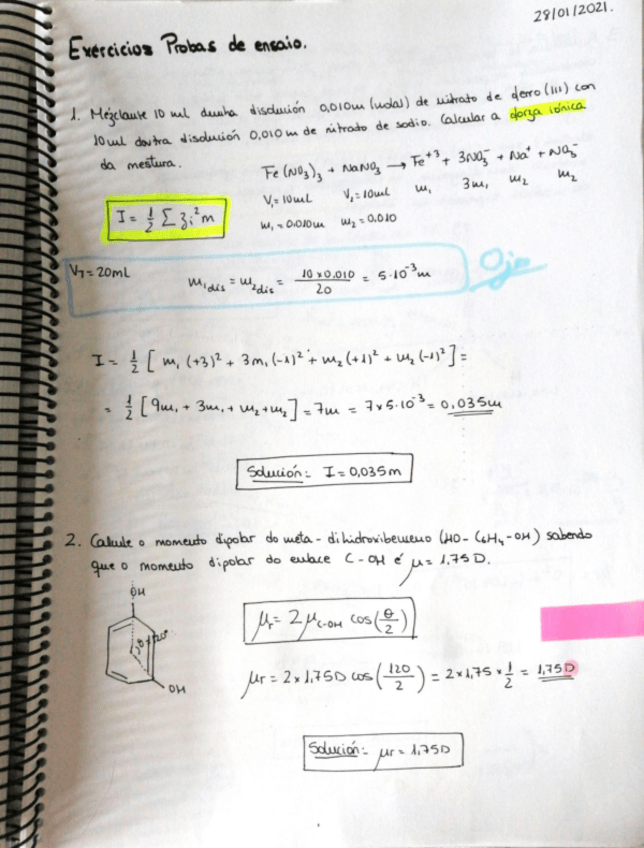 29/01/2021.
Exercicios Probas de ensaio.
1. Mézclanse 10 mL dunha disolución 0,010m (molal) de nitrato de ferro (III) con
10 mL doutra disolución 0,010 m de nitrato de sodio. Calcular a forza iónica
da mestura.
Fe(NO₃)₃ + NaNO₃ → Fe⁺³ + 3NO₃⁻ + Na⁺ + NO₃⁻
V₁=10mL V₂=10mL m₁ 3m₁ m₂ m₂
I = 1/2 Σ zᵢ² m
m₁=0.010m m₂=0.010
V_T = 20mL
m₁dis = m₂dis = 10x0.010/20 = 5·10⁻³ m
Ojo
I = 1/2 [ m₁ (+3)² + 3m₁ (-1)² + m₂ (+1)² + m₂ (-1)² ] =
= 1/2 [ 9m₁ + 3m₁ + m₂ + m₂ ] = 7m = 7x5·10⁻³ = 0,035m
Solución: I = 0,035m
2. Calcule o momento dipolar do meta-dihidroxibenceno (HO-C₆H₄-OH) sabendo
que o momento dipolar do enlace C-OH é μ = 1,75D.
OH
OH
μr = 2 μC-OH cos(θ/2)
μr = 2 x 1,75D cos(120/2) = 2 x 1,75 x 1/2 = 1,75D
Solución: μr = 1,75D